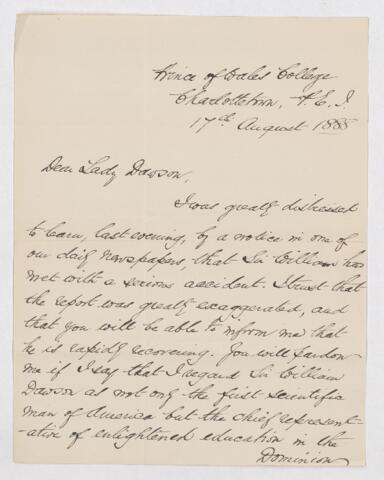 Prince of Wales College
Charlottetown, P.E.I.
17th August 1888
Dear Lady Dawson,
I was greatly distressed
to learn, last evening, by a notice in one of
our daily newspapers, that Sir William has
met with a serious accident. I trust that
the report was greatly exaggerated, and
that you will be able to inform me that
he is rapidly recovering. You will pardon
me if I say that I regard Sir William
Dawson as not only the first scientific
man of America but the chief represent-
ative of enlightened education in the
Dominion